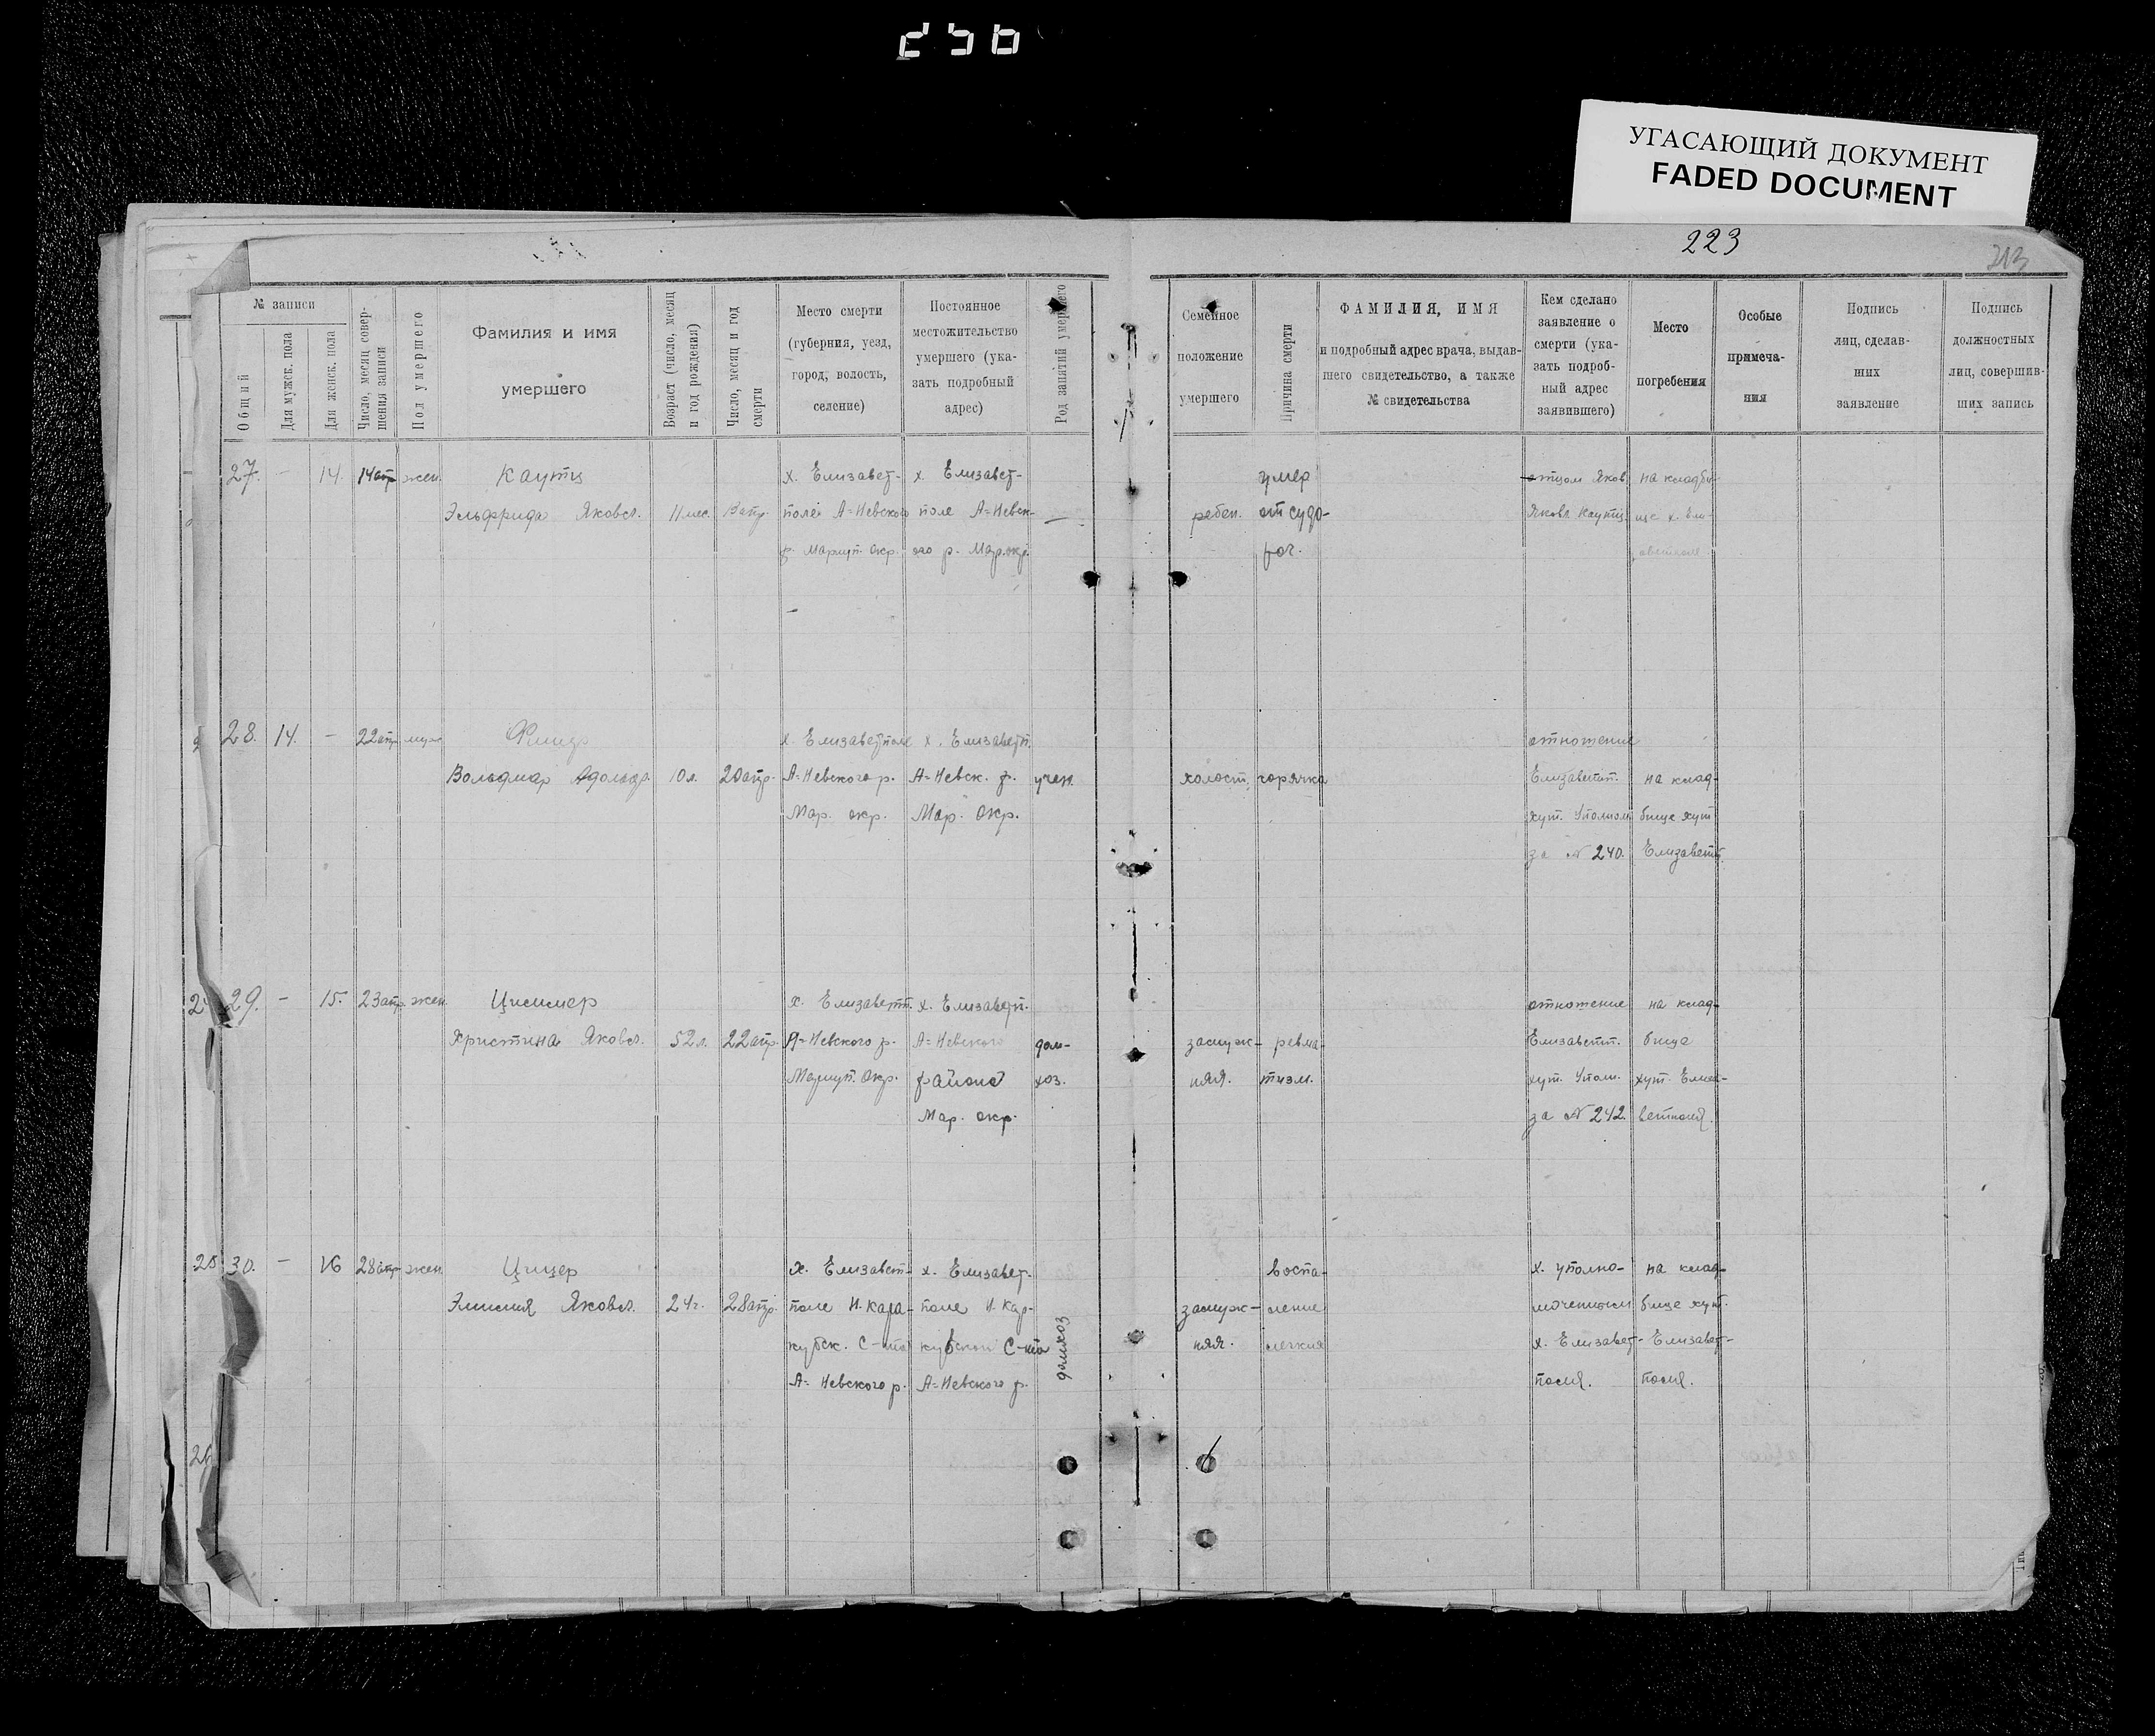 УГАСАЮЩИЙ ДОКУМЕНТ
FADED DOCUMENT
223
213
№ записи
Общий
Для мужск. пола
Для женск. пола
Число, месяц совер-
шения записи
Пол умершего
Фамилия и имя
умершего
Возраст (число, месяц
и год рождения)
Число, месяц и год
смерти
Место смерти
(губерния, уезд,
город, волость,
селение)
Постоянное
местожительство
умершего (ука-
зать подробный
адрес)
Род занятий умершего
Семейное
положение
умершего
Причина смерти
ФАМИЛИЯ, ИМЯ
и подробный адрес врача, выдав-
шего свидетельство, а также
№ свидетельства
Кем сделано
заявление о
смерти (ука-
зать подроб-
ный адрес
заявившего)
Место
погребения
Особые
примеча-
ния
Подпись
лиц, сделав-
ших
заявление
Подпись
должностных
лиц, совершив-
ших запись
27. - 14. 14 апр жен.
Каутц
Эльфрида Яковл.
11 мес.
х. Елизавет-
поле А=Невского
р. Мариуп. окр.
х. Елизавет-
поле А=Невск-
ого р. Мар. окр.
—
ребен.
умер
от судо-
рог.
отцом Яков
Яковл. Каутц
на кладби-
ще х. Ели-
28. 14. - 22 апр муж
Вольдмар Адольф.
10 л.
20 апр.
х. Елизаветполе
А=Невского р.
Мар. окр.
х. Елизаветп.
А=Невск. р.
Мар. Окр.
учен.
холост.
горячка
отношение
Елизаветп.
хут. Уполном
за № 240.
на клад-
бище хут
Елизаветп.
29. - 15. 23 апр. жен.
Циммер
Христина Яковл.
52 л.
22 апр.
х. Елизаветп.
А=Невского р.
Мариуп. Окр.
х. Елизаветп.
А=Невского
района
Мар. окр.
дом-
хоз.
замуж-
няя.
ревма-
тизм.
отношение
Елизаветп.
хут. Упол.
за № 242.
на клад-
бище
хут. Елиза-
ветполя.
25 30. - 16 28 апр жен
Цицер
Эмилия Яковл.
24 г.
28 апр.
х. Елизавет-
поле Н. Кара-
кубск. С-та
А=Невского р.
х. Елизавет-
поле Н. Кар-
кубской С-та
А=Невского р.
домхоз
замуж-
няя.
воспа-
ление
легких
х. уполно-
моченным
х. Елизавет-
поля.
на клад-
бище хут.
Елизавет-
поля.
26